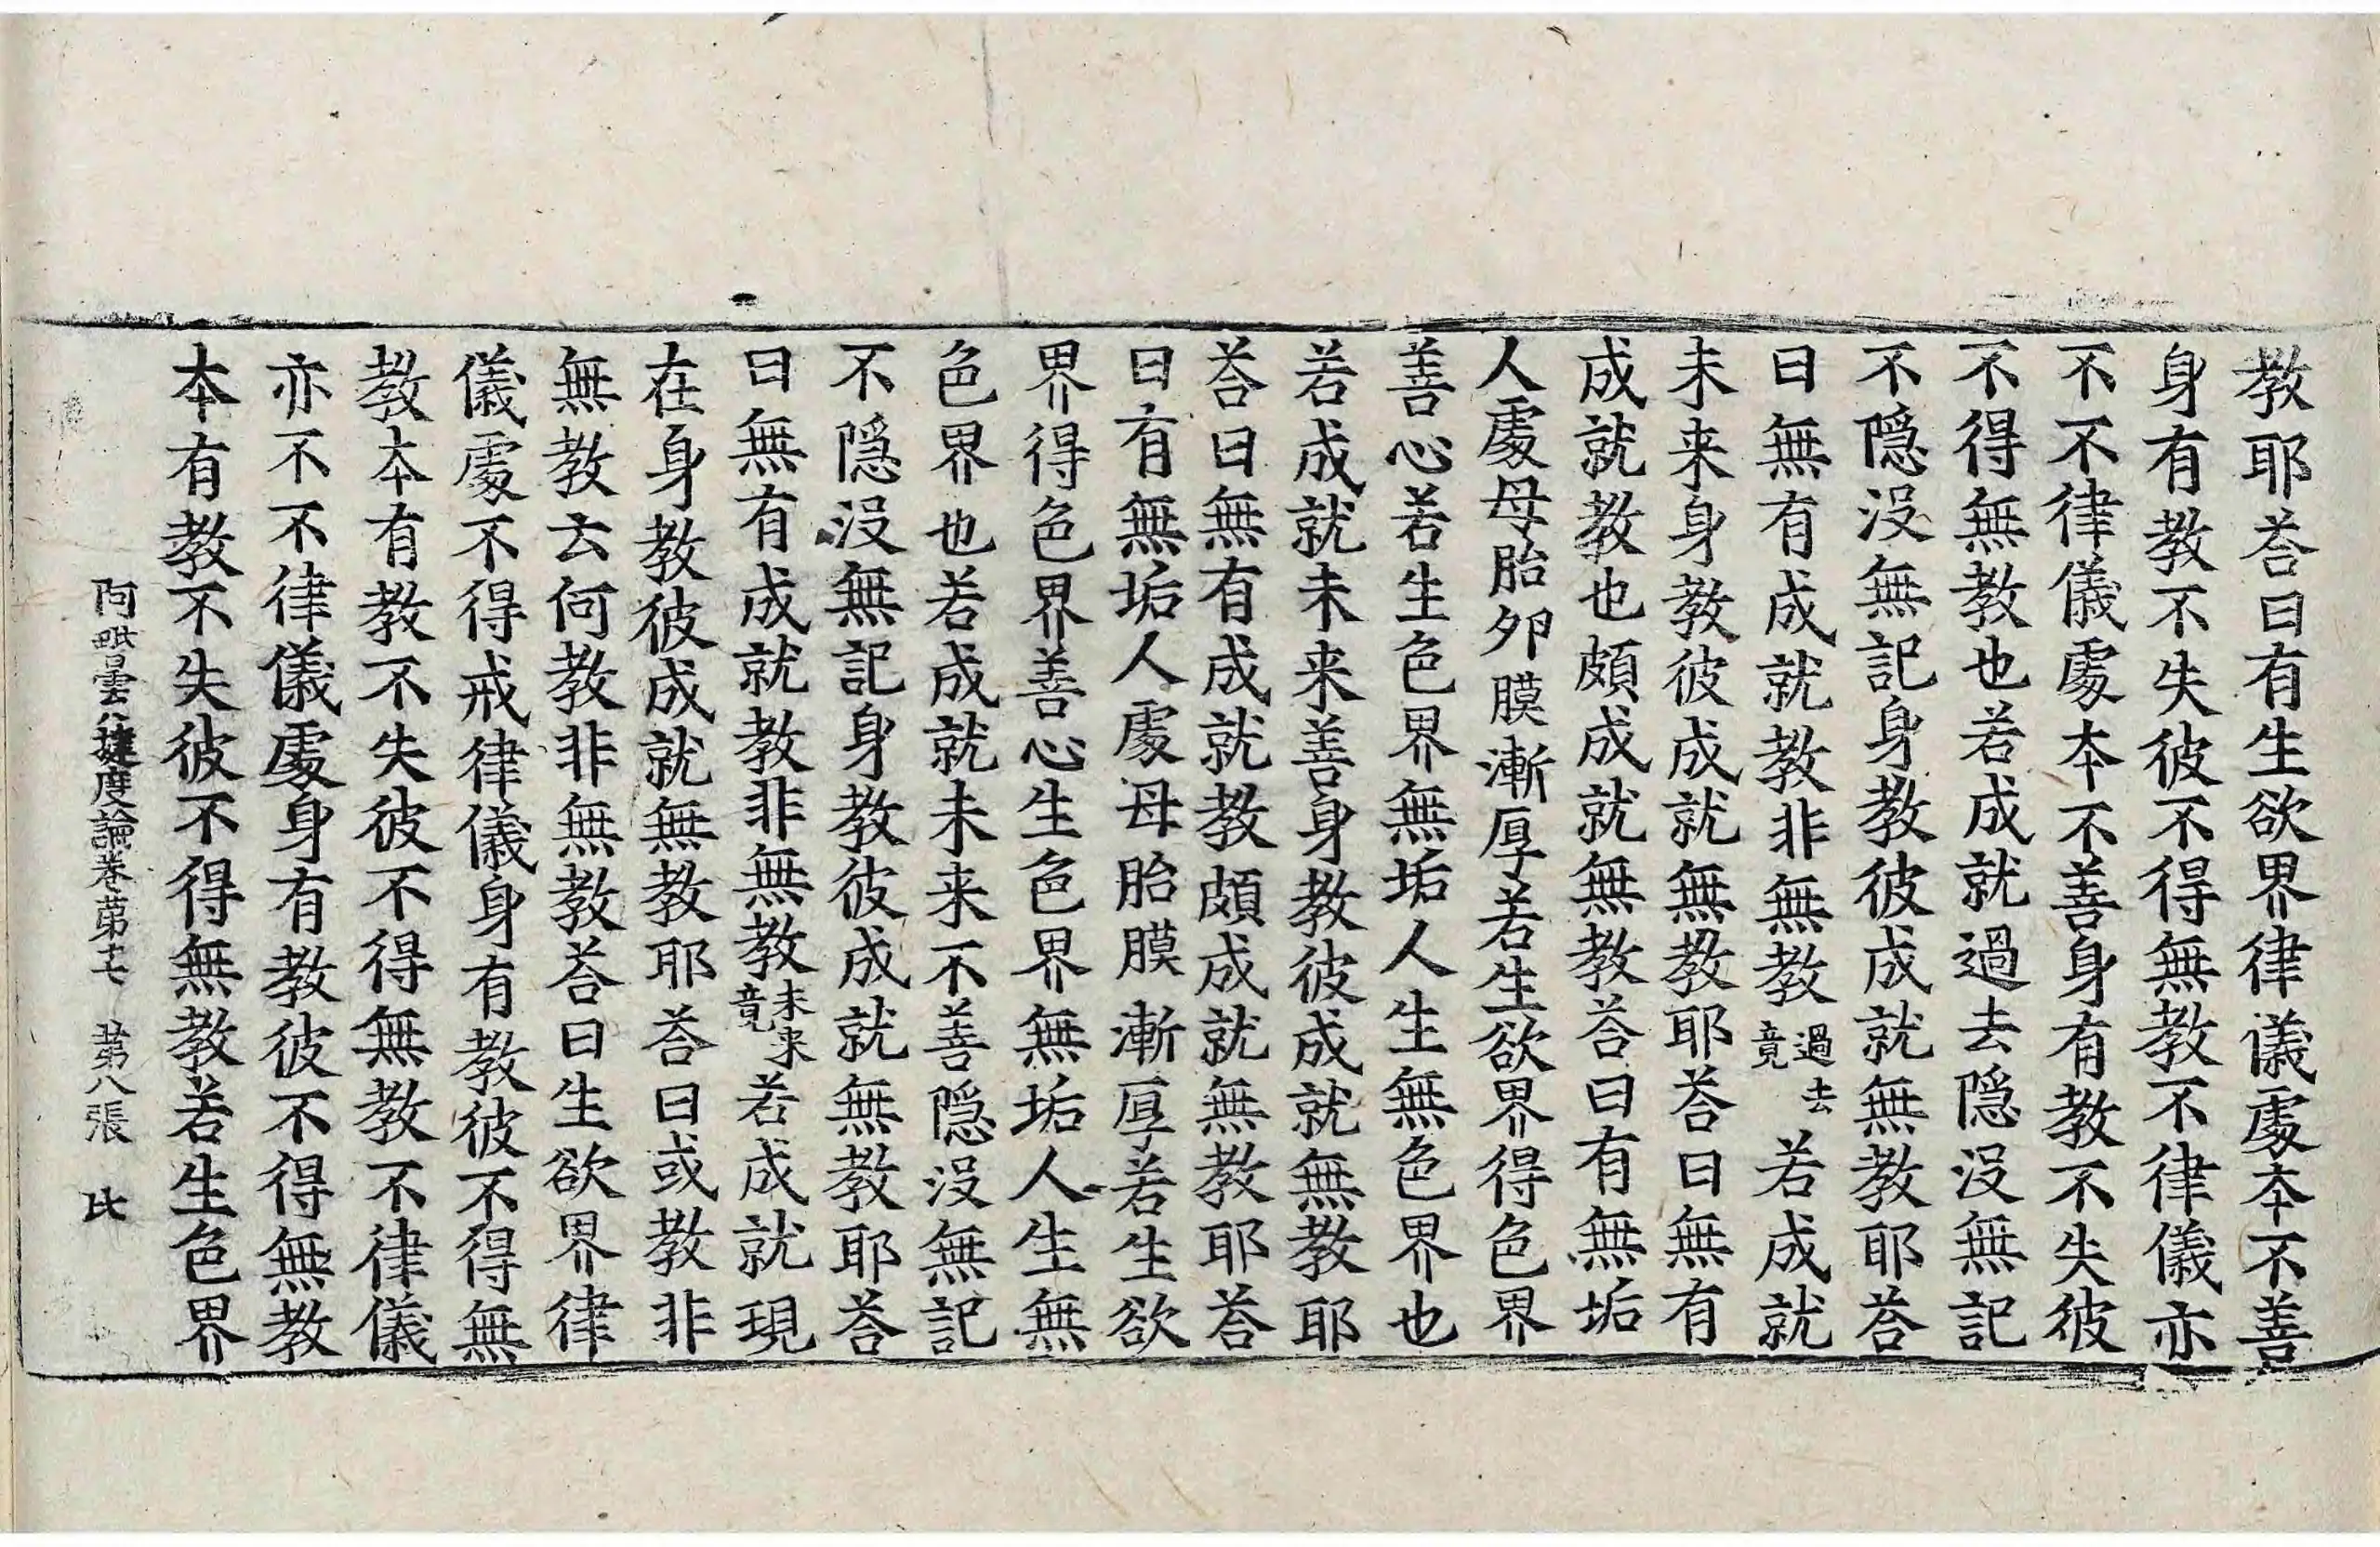 教耶荅曰有生欲界律儀處本不善
身有教不失彼不得無教不律儀亦
不不律儀處本不善身有教不失彼
不得無教也若成就過去隱没無記
不隱没無記身教彼成就無教耶荅
曰無有成就教非無教過去竟若成就
未来身教彼成就無教耶荅曰無有
成就教也頗成就無教荅曰有無垢
人處母胎夘膜漸厚若生欲界得色界
善心若生色界無垢人生無色界也
若成就未来善身教彼成就無教耶
荅曰無有成就教頗成就無教耶荅
曰有無垢人處母胎膜漸厚若生欲
界得色界善心生色界無垢人生無
色界也若成就未来不善隱没無記
不隱没無記身教彼成就無教耶荅
曰無有成就教非無教未来竟若成就現
在身教彼成就無教耶荅曰或教非
無教云何教非無教荅曰生欲界律
儀處不得戒律儀身有教彼不得無
教本有教不失彼不得無教不律儀
亦不不律儀處身有教彼不得無教
本有教不失彼不得無教若生色界
阿毗曇八揵度論卷第十七　第八張　比